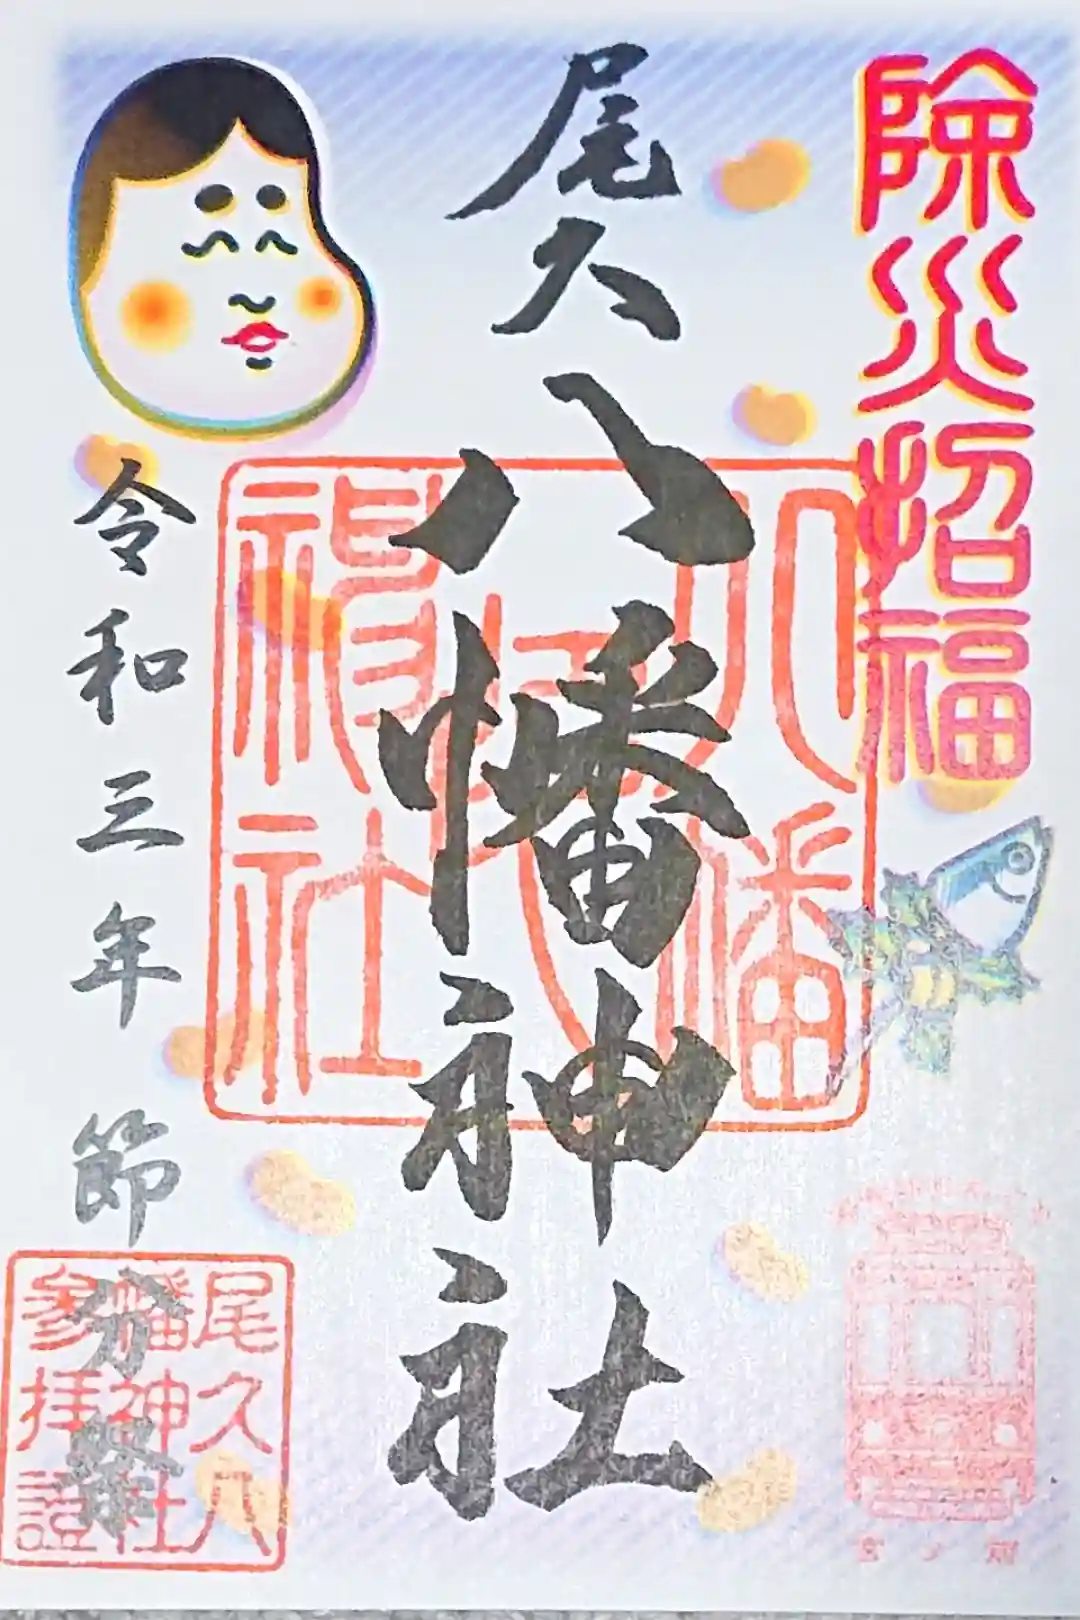 除災招福
尾久
八幡神社
八幡神社
令和三年 節分祭
尾久八
幡神社
参拝證
宮ノ前